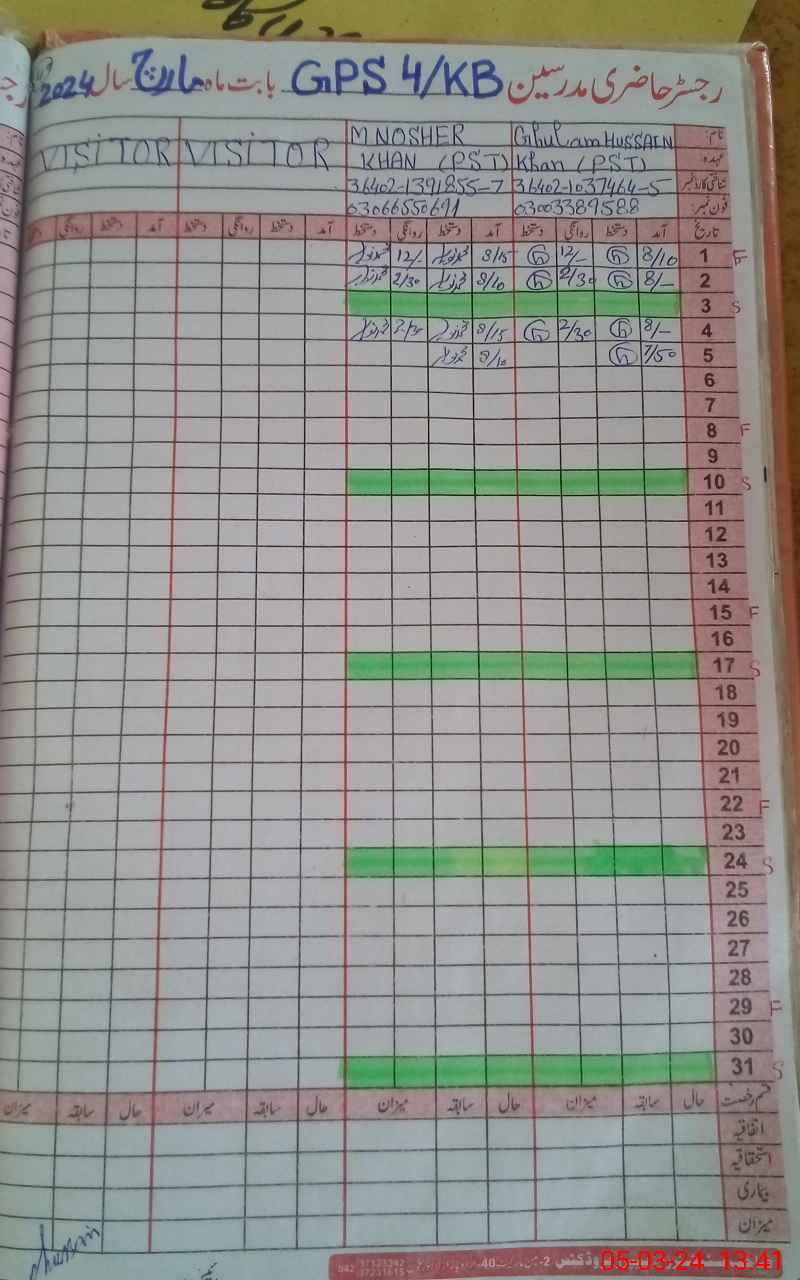 رجسٹر حاضری مدرسین GPS 4/KB بابت ماہ مارچ سال 2024
نام: Ghulam HUSSAIN M NOSHER
عہدہ: Khan (PST) KHAN (PST) VISITOR VISITOR
شناختی کارڈ نمبر 36402-1037464-5 36402-1391855-7
فون نمبر: 03003389588 03066550691
تاریخ آمد دستخط روانگی دستخط آمد دستخط روانگی دستخط آمد دستخط روانگی دستخط آمد دستخط روانگی دستخط
1 F 8/10 12/- 8/15 12/-
2 8/- 2/30 8/10 2/30
3 S
4 8/- 2/30 8/15 2/30
5 7/50 8/10
6
7
8 F
9
10 S
11
12
13
14
15 F
16
17 S
18
19
20
21
22 F
23
24 S
25
26
27
28
29 F
30
31 S
قسم رخصت حال سابقہ میزان حال سابقہ میزان حال سابقہ میزان حال سابقہ میزان
اتفاقیہ
استحقاقیہ
بیماری
میزان
05-03-24 13:41